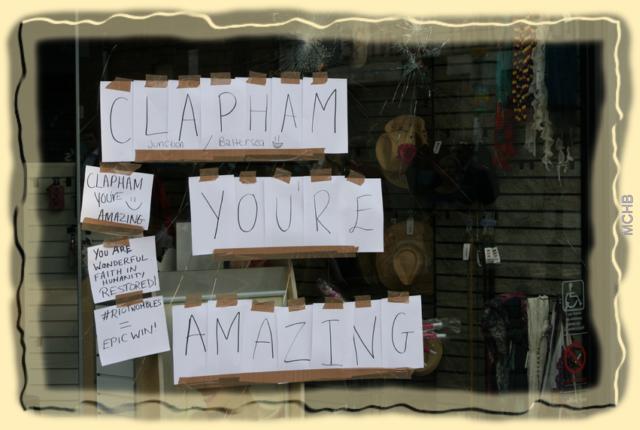 CLAPHAM
Junction / Battersea
YOU'RE
AMAZING
CLAPHAM
YOU'RE
AMAZING
YOU ARE
WONDERFUL
FAITH IN
HUMANITY
RESTORED!
#RIOTWOMBLES
=
EPIC WIN!
MCHB